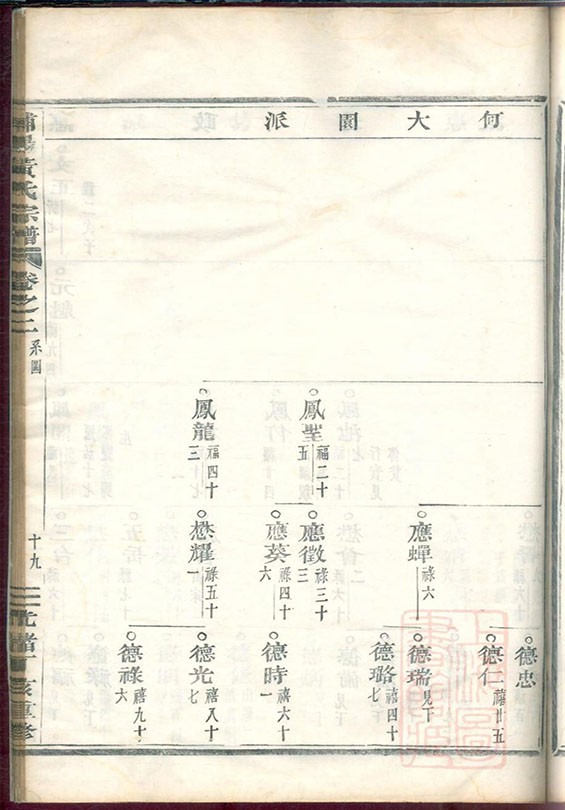 何大園派
鳳聖
福二十五
鳳龍
福四十三
應蟬
祿六
應徵
祿三十三
應葵
祿四十六
懋耀
祿五十
德忠
德仁
禧廿五
德瑞
見下
德璐
禧四十七
德時
禧六十一
德光
禧八十七
德祿
禧九十六
黃氏宗譜
卷之二
系圖
十九
重修